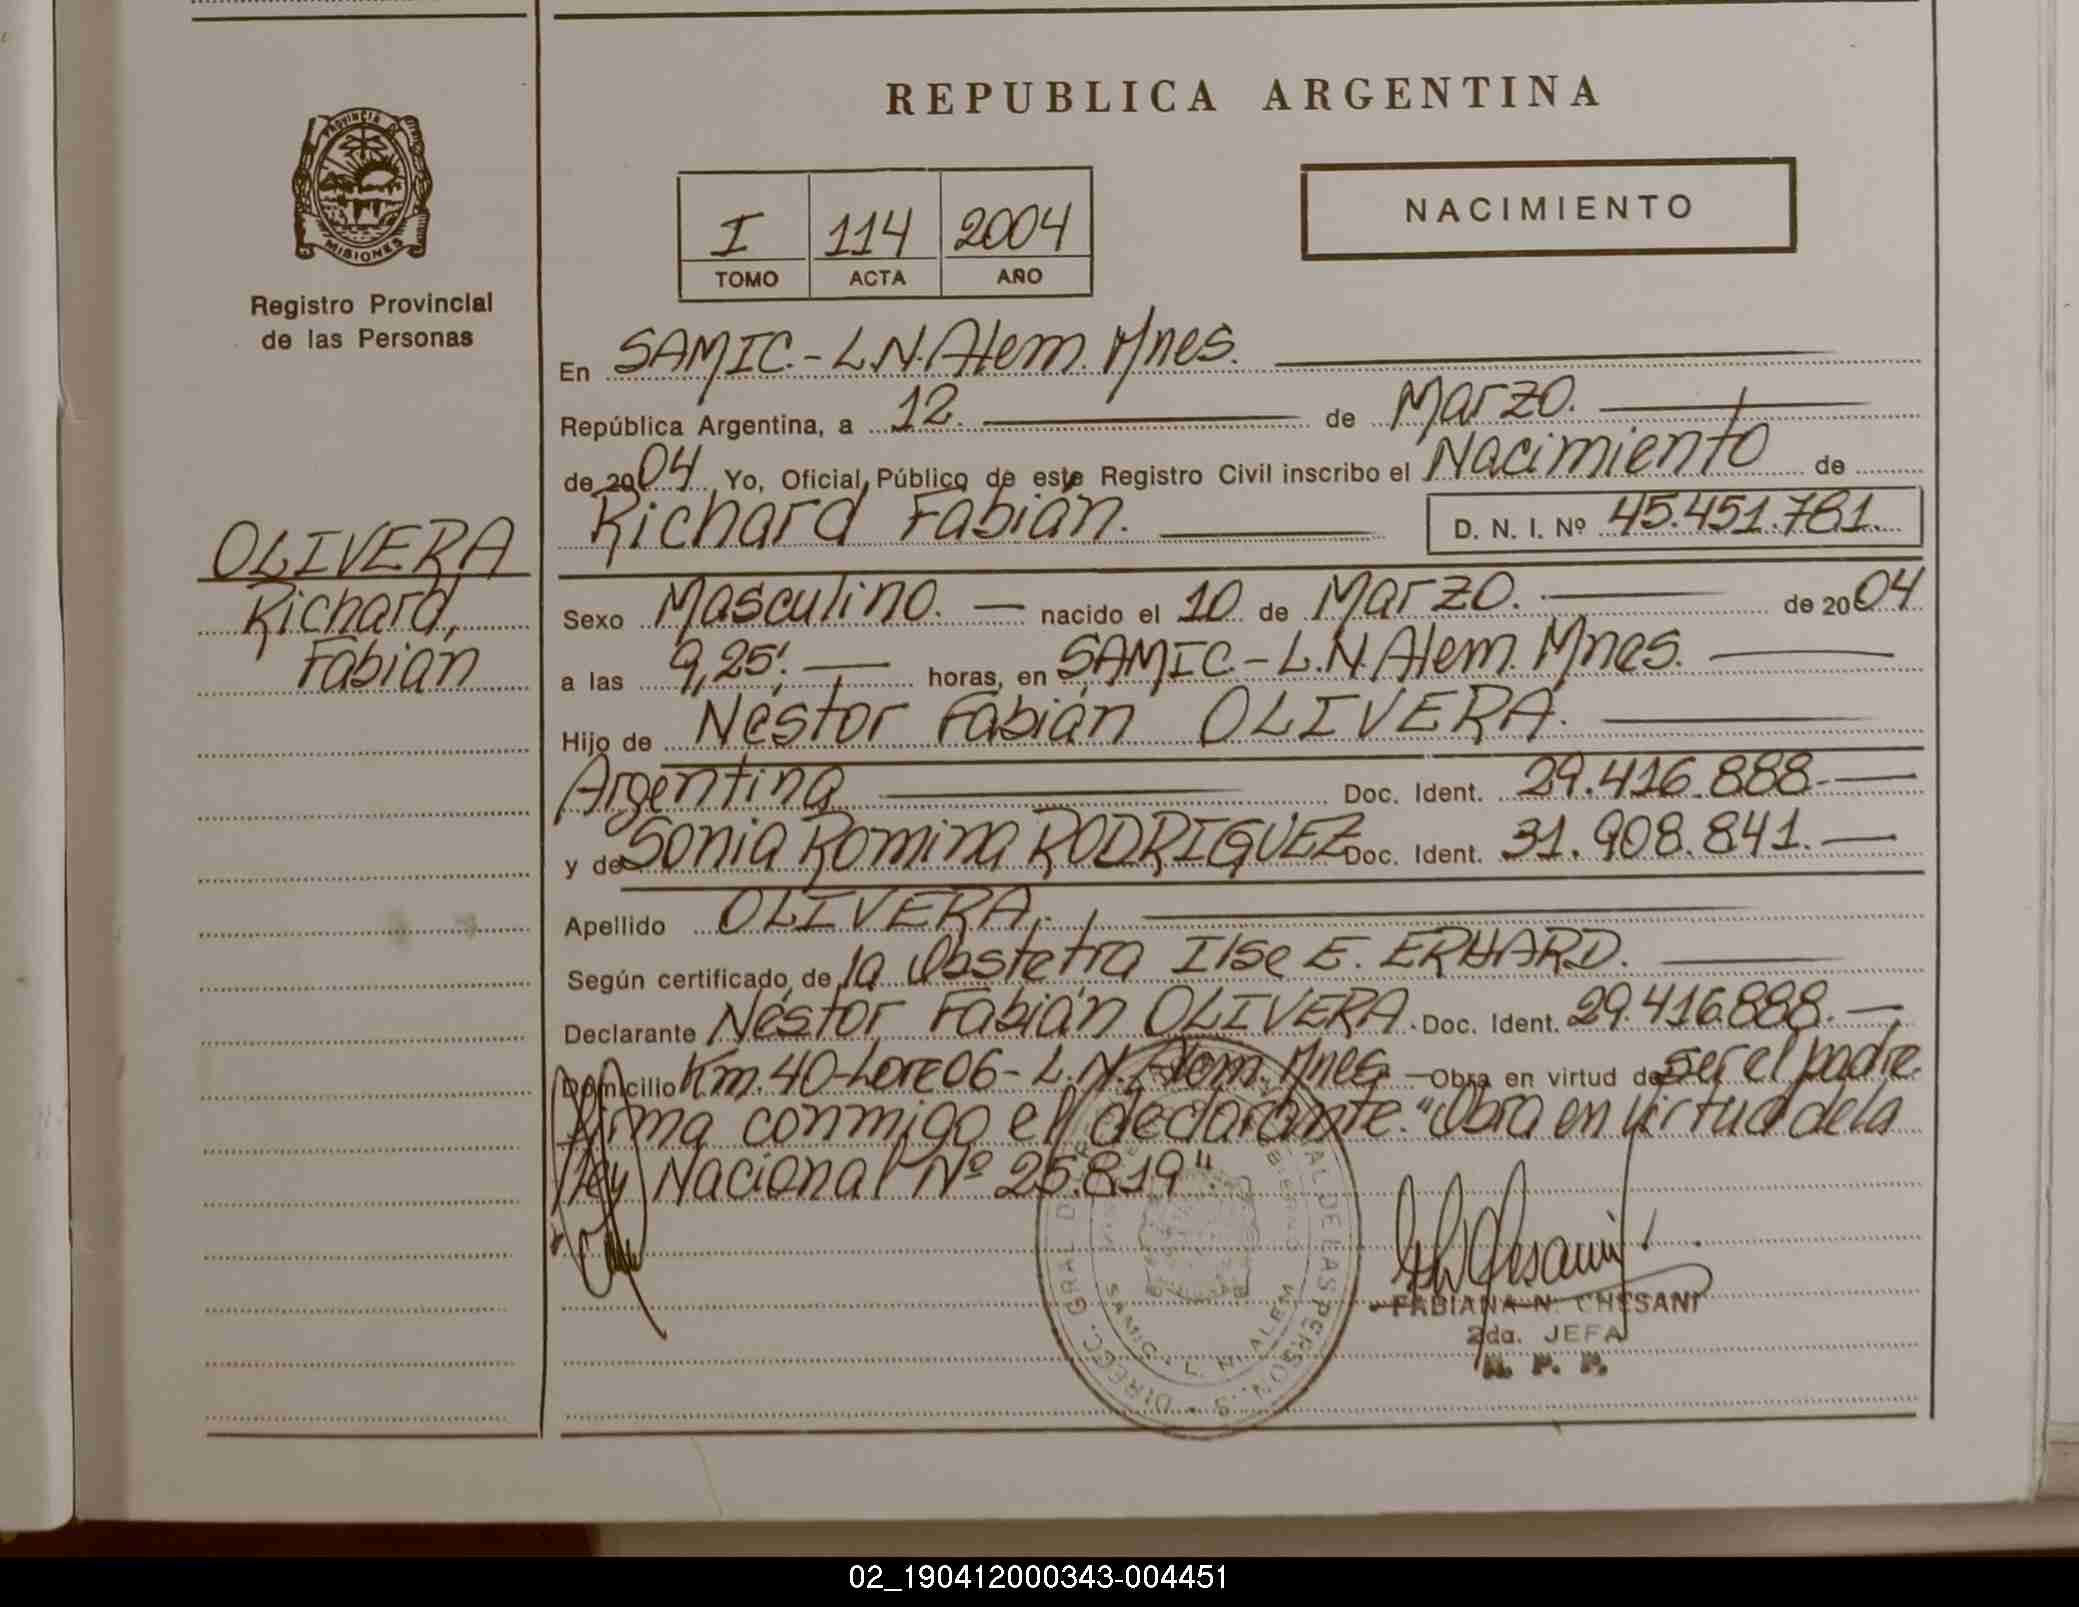 REPUBLICA ARGENTINA
PROVINCIA DE MISIONES
Registro Provincial
de las Personas
I 114 2004
TOMO ACTA AÑO
NACIMIENTO
OLIVERA
Richard,
Fabián
En SAMIC.- L.N.Alem. Mnes.
República Argentina, a 12. de Marzo.
de 2004 Yo, Oficial Público de este Registro Civil inscribo el Nacimiento de
Richard Fabián. D. N. I. Nº 45.451.781.
Sexo Masculino. nacido el 10 de Marzo. de 2004
a las 9,25'. horas, en SAMIC.- L.N.Alem. Mnes.
Hijo de Néstor Fabián OLIVERA.
Argentina Doc. Ident. 29.416.888.
y de Sonia Romina RODRIGUEZ Doc. Ident. 31.908.841.
Apellido OLIVERA.
Según certificado de la Obstetra Ilse E. ERHARD.
Declarante Néstor Fabián OLIVERA. Doc. Ident. 29.416.888.
Domicilio Km.40- Lote 06- L.N.Alem. Mnes. Obra en virtud de ser el padre.
Firma conmigo el declarante. "Obra en virtud de la
ley Nacional Nº 25.819".
SAMIC. L. N. ALEM
FABIANA N. CHESANI
2da. JEFA
R. P. P.
02_190412000343-004451